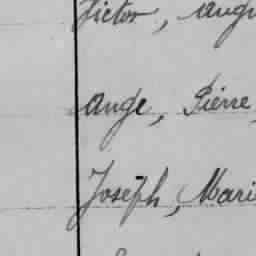 Victor, Augu
Ange, Pierre,
Joseph, Mari